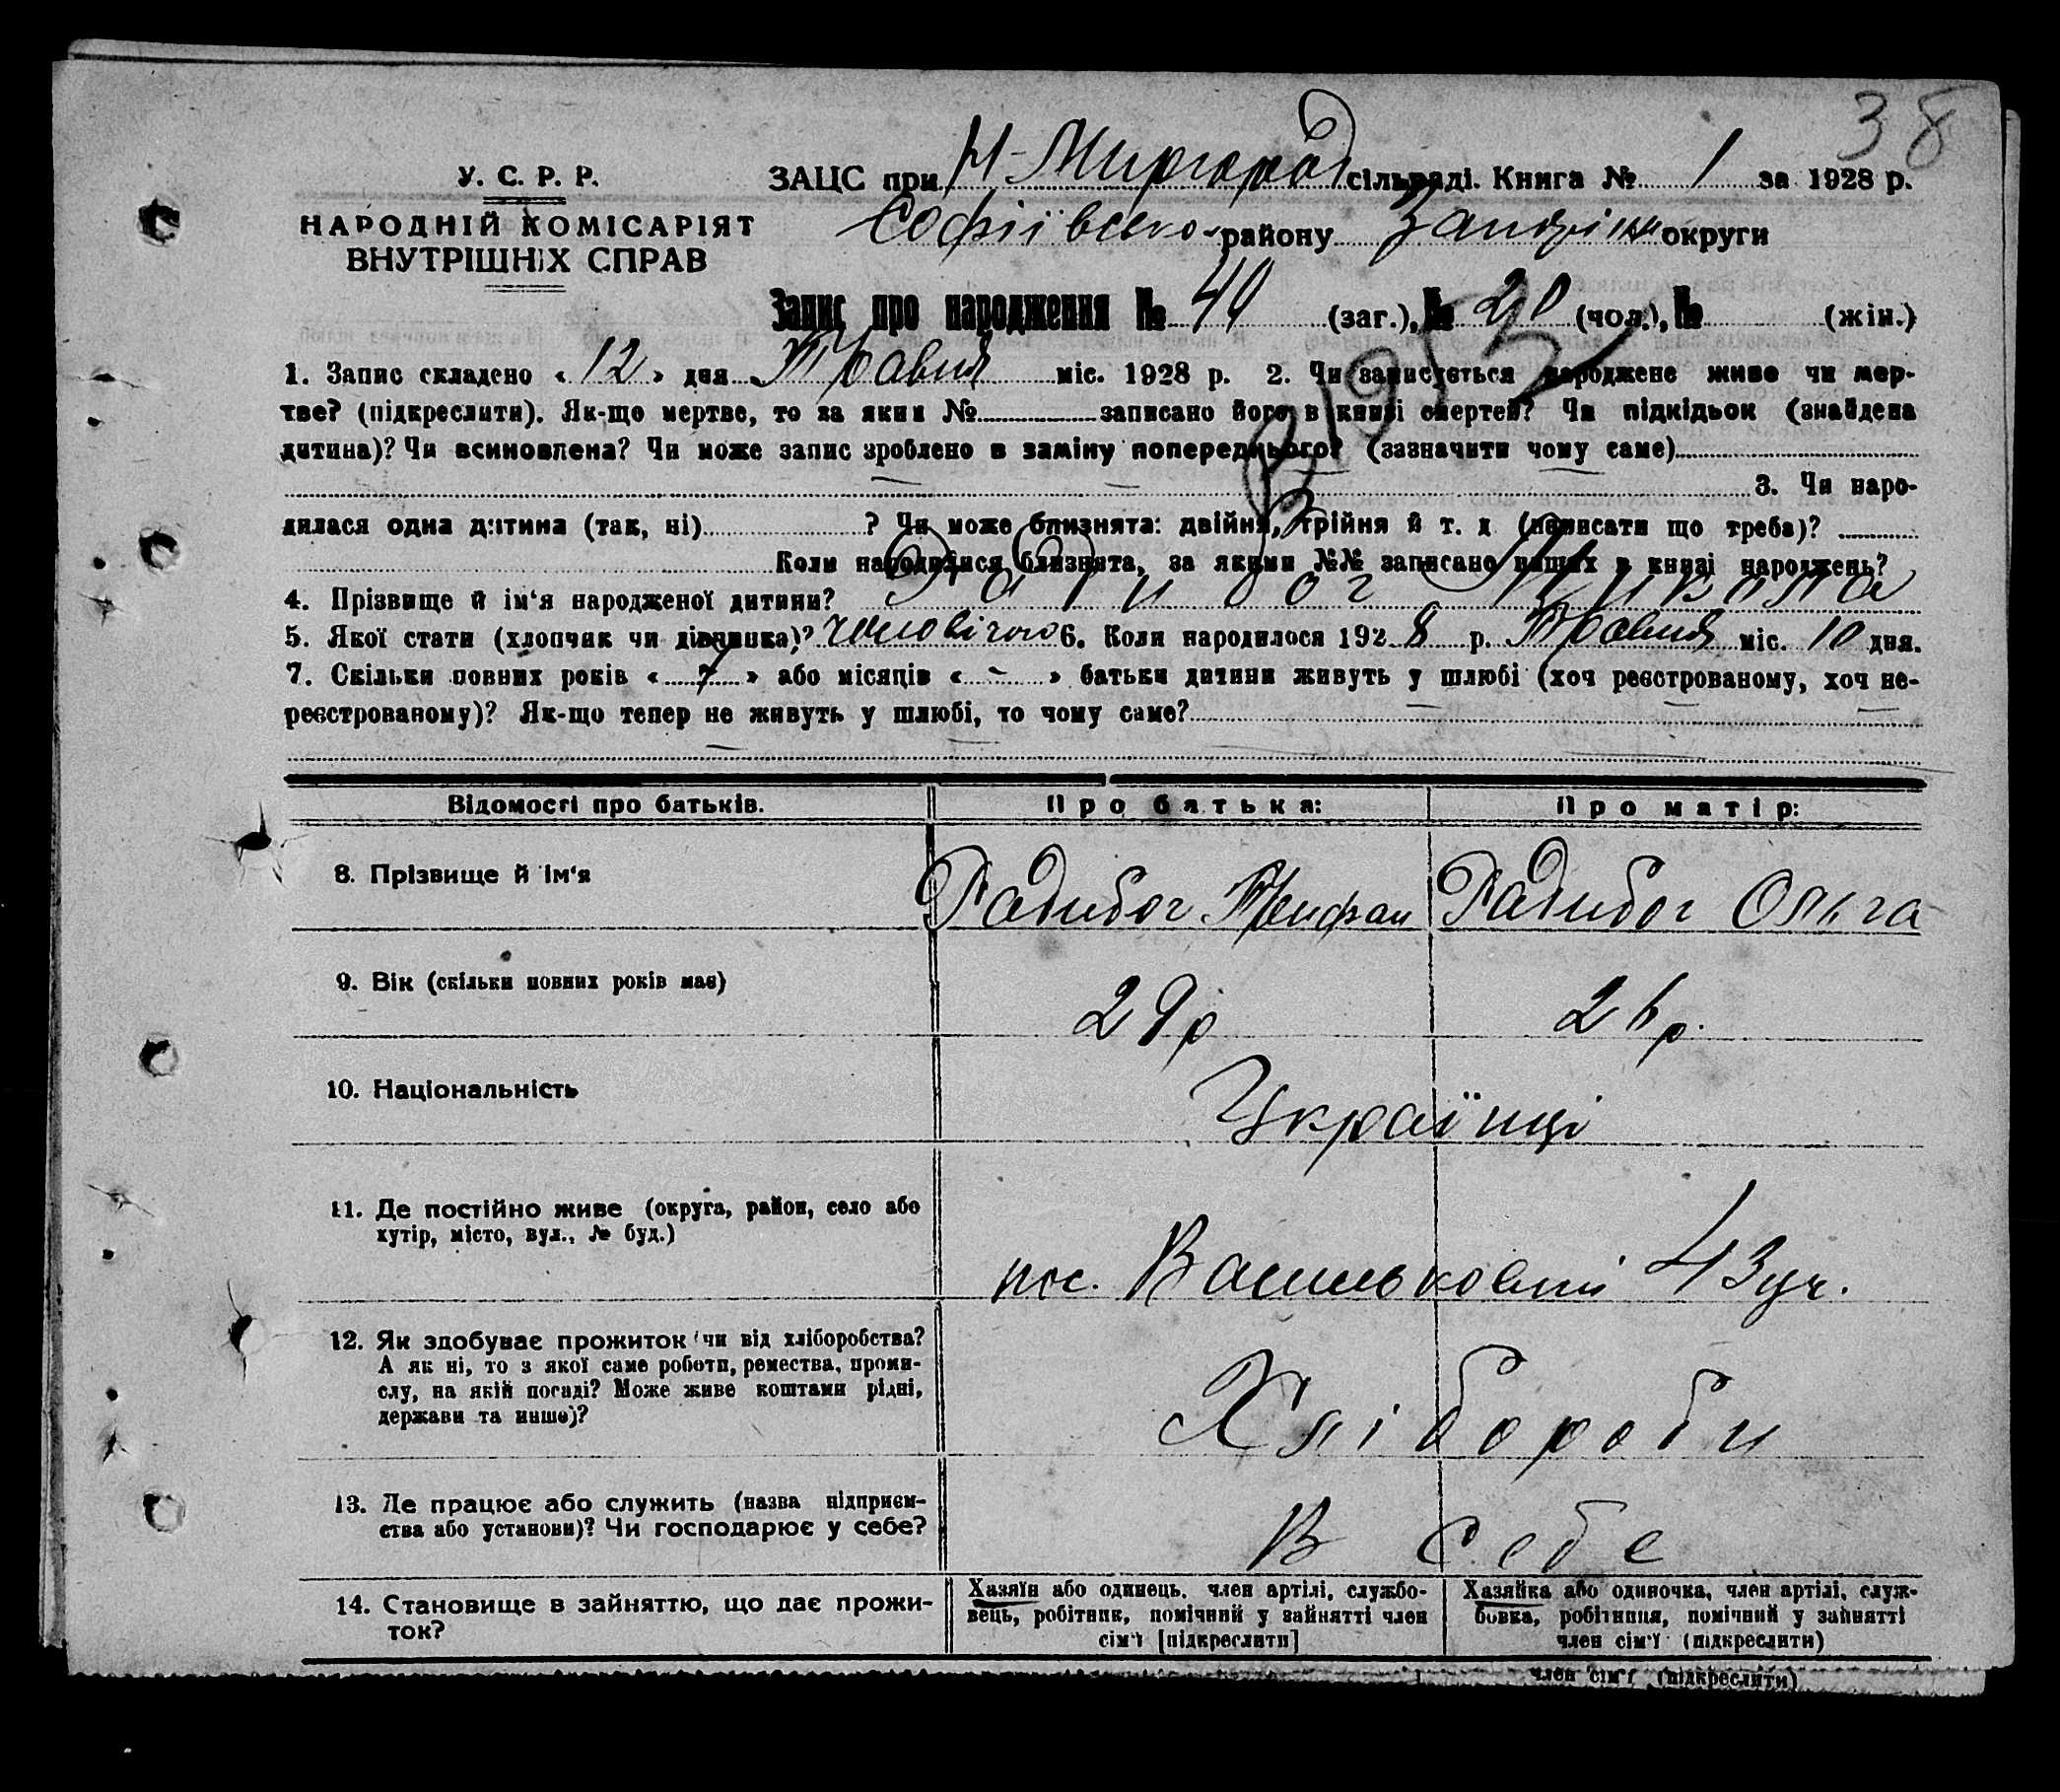 38
У. С. Р. Р.
НАРОДНІЙ КОМІСАРІЯТ
ВНУТРІШНІХ СПРАВ
ЗАЦС при Н-Миргород сільраді. Книга № 1 за 1928 р.
Софіївсько району округи
Запис про народження № 40 (заг.), № 20 (чол.), № (жін.)
1. Запис складено «12» дня Травня міс. 1928 р. 2. Чи записується народжене живе чи мер-
тве? (підкреслити). Як-що мертве, то за яким № записано його в книзі смертей? Чи підкідьок (знайдена
дитина)? Чи всиновлена? Чи може запис зроблено в заміну попереднього? (зазначити чому саме)
3. Чи наро-
дилася одна дитина (так, ні) ? Чи може близнята: двійня, трійня й т. д. (написати що треба)?
Коли народилися близнята, за якими №№ записано інших в книзі народжень?
4. Прізвище й ім'я народженої дитини? Радибог Микола
5. Якої стати (хлопчик чи дівчинка)? чоловічого 6. Коли народилося 1928 р. Травня міс. 10 дня.
7. Скільки повних років «7» або місяців «-» батьки дитини живуть у шлюбі (хоч реєстрованому, хоч не-
реєстрованому)? Як-що тепер не живуть у шлюбі, то чому саме?
Відомості про батьків. Про батька: Про матір:
8. Прізвище й ім'я Радибог Трифан Радибог Ольга
9. Вік (скільки повних років має) 29р 26р.
10. Національність Українці
11. Де постійно живе (округа, район, село або
хутір, місто, вул., № буд.)
пос. 43 уч.
12. Як здобуває прожиток чи від хліборобства?
А як ні, то з якої саме роботи, ремества, проми-
слу, на якій посаді? Може живе коштами рідні,
держави та инше)?
Хлібороби
13. Де працює або служить (назва підприєм-
ства або установи)? Чи господарює у себе?
В себе
14. Становище в зайняттю, що дає прожи-
ток?
Хазяїн або одинець, член артілі, службо-
вець, робітник, помічний у зайнятті член
сім'ї [підкреслити]
Хазяйка або одиночка, член артілі, служ-
бовка, робітниця, помічний у зайнятті
член сім'ї (підкреслити)
член сім'ї (підкреслити)